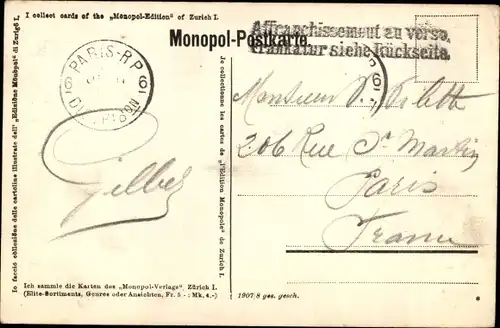 I collect cards of the „Monopol-Edition" of Zurich I.
Affranchissement au verso.
Frankatur siehe Rückseite.
Monopol-Postkarte
PARIS-R.P
DISTRIBON
Io faccio collezione delle cartoline illustrate dell' „Edizione Monopol" di Zurigo I.
Je collectionne les cartes de „l'Edition Monopole" de Zurich I.
Monsieur P. Pilette
206 Rue St Martin
Paris
France
Ich sammle die Karten des „Monopol-Verlags", Zürich I.
(Elite-Sortiments, Genres oder Ansichten, Fr. 5 - : Mk. 4.-)
1907/8 ges. gesch.